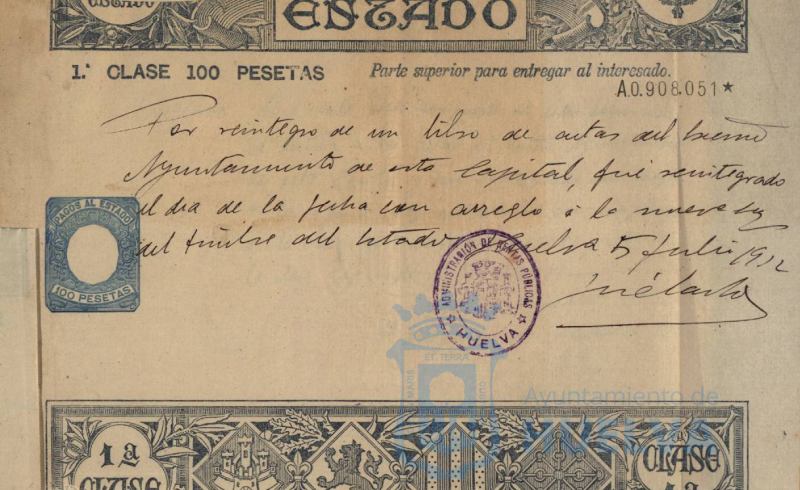 ESTADO
ESTADO
1.ª CLASE 100 PESETAS
Parte superior para entregar al interesado.
A.0.908.051*
Por reintegro de un libro de actas del Excmo
Ayuntamiento de esta Capital, fué reintegrado
el dia de la fecha con arreglo á la nueva Ley
del timbre del Estado. Huelva 5 Julio 1912
PAGOS AL ESTADO
100 PESETAS
ADMINISTRACIÓN DE RENTAS PÚBLICAS
HUELVA
ET TERRA
Ayuntamiento de
HUELVA
1ª
CLASE
CLASE
1ª